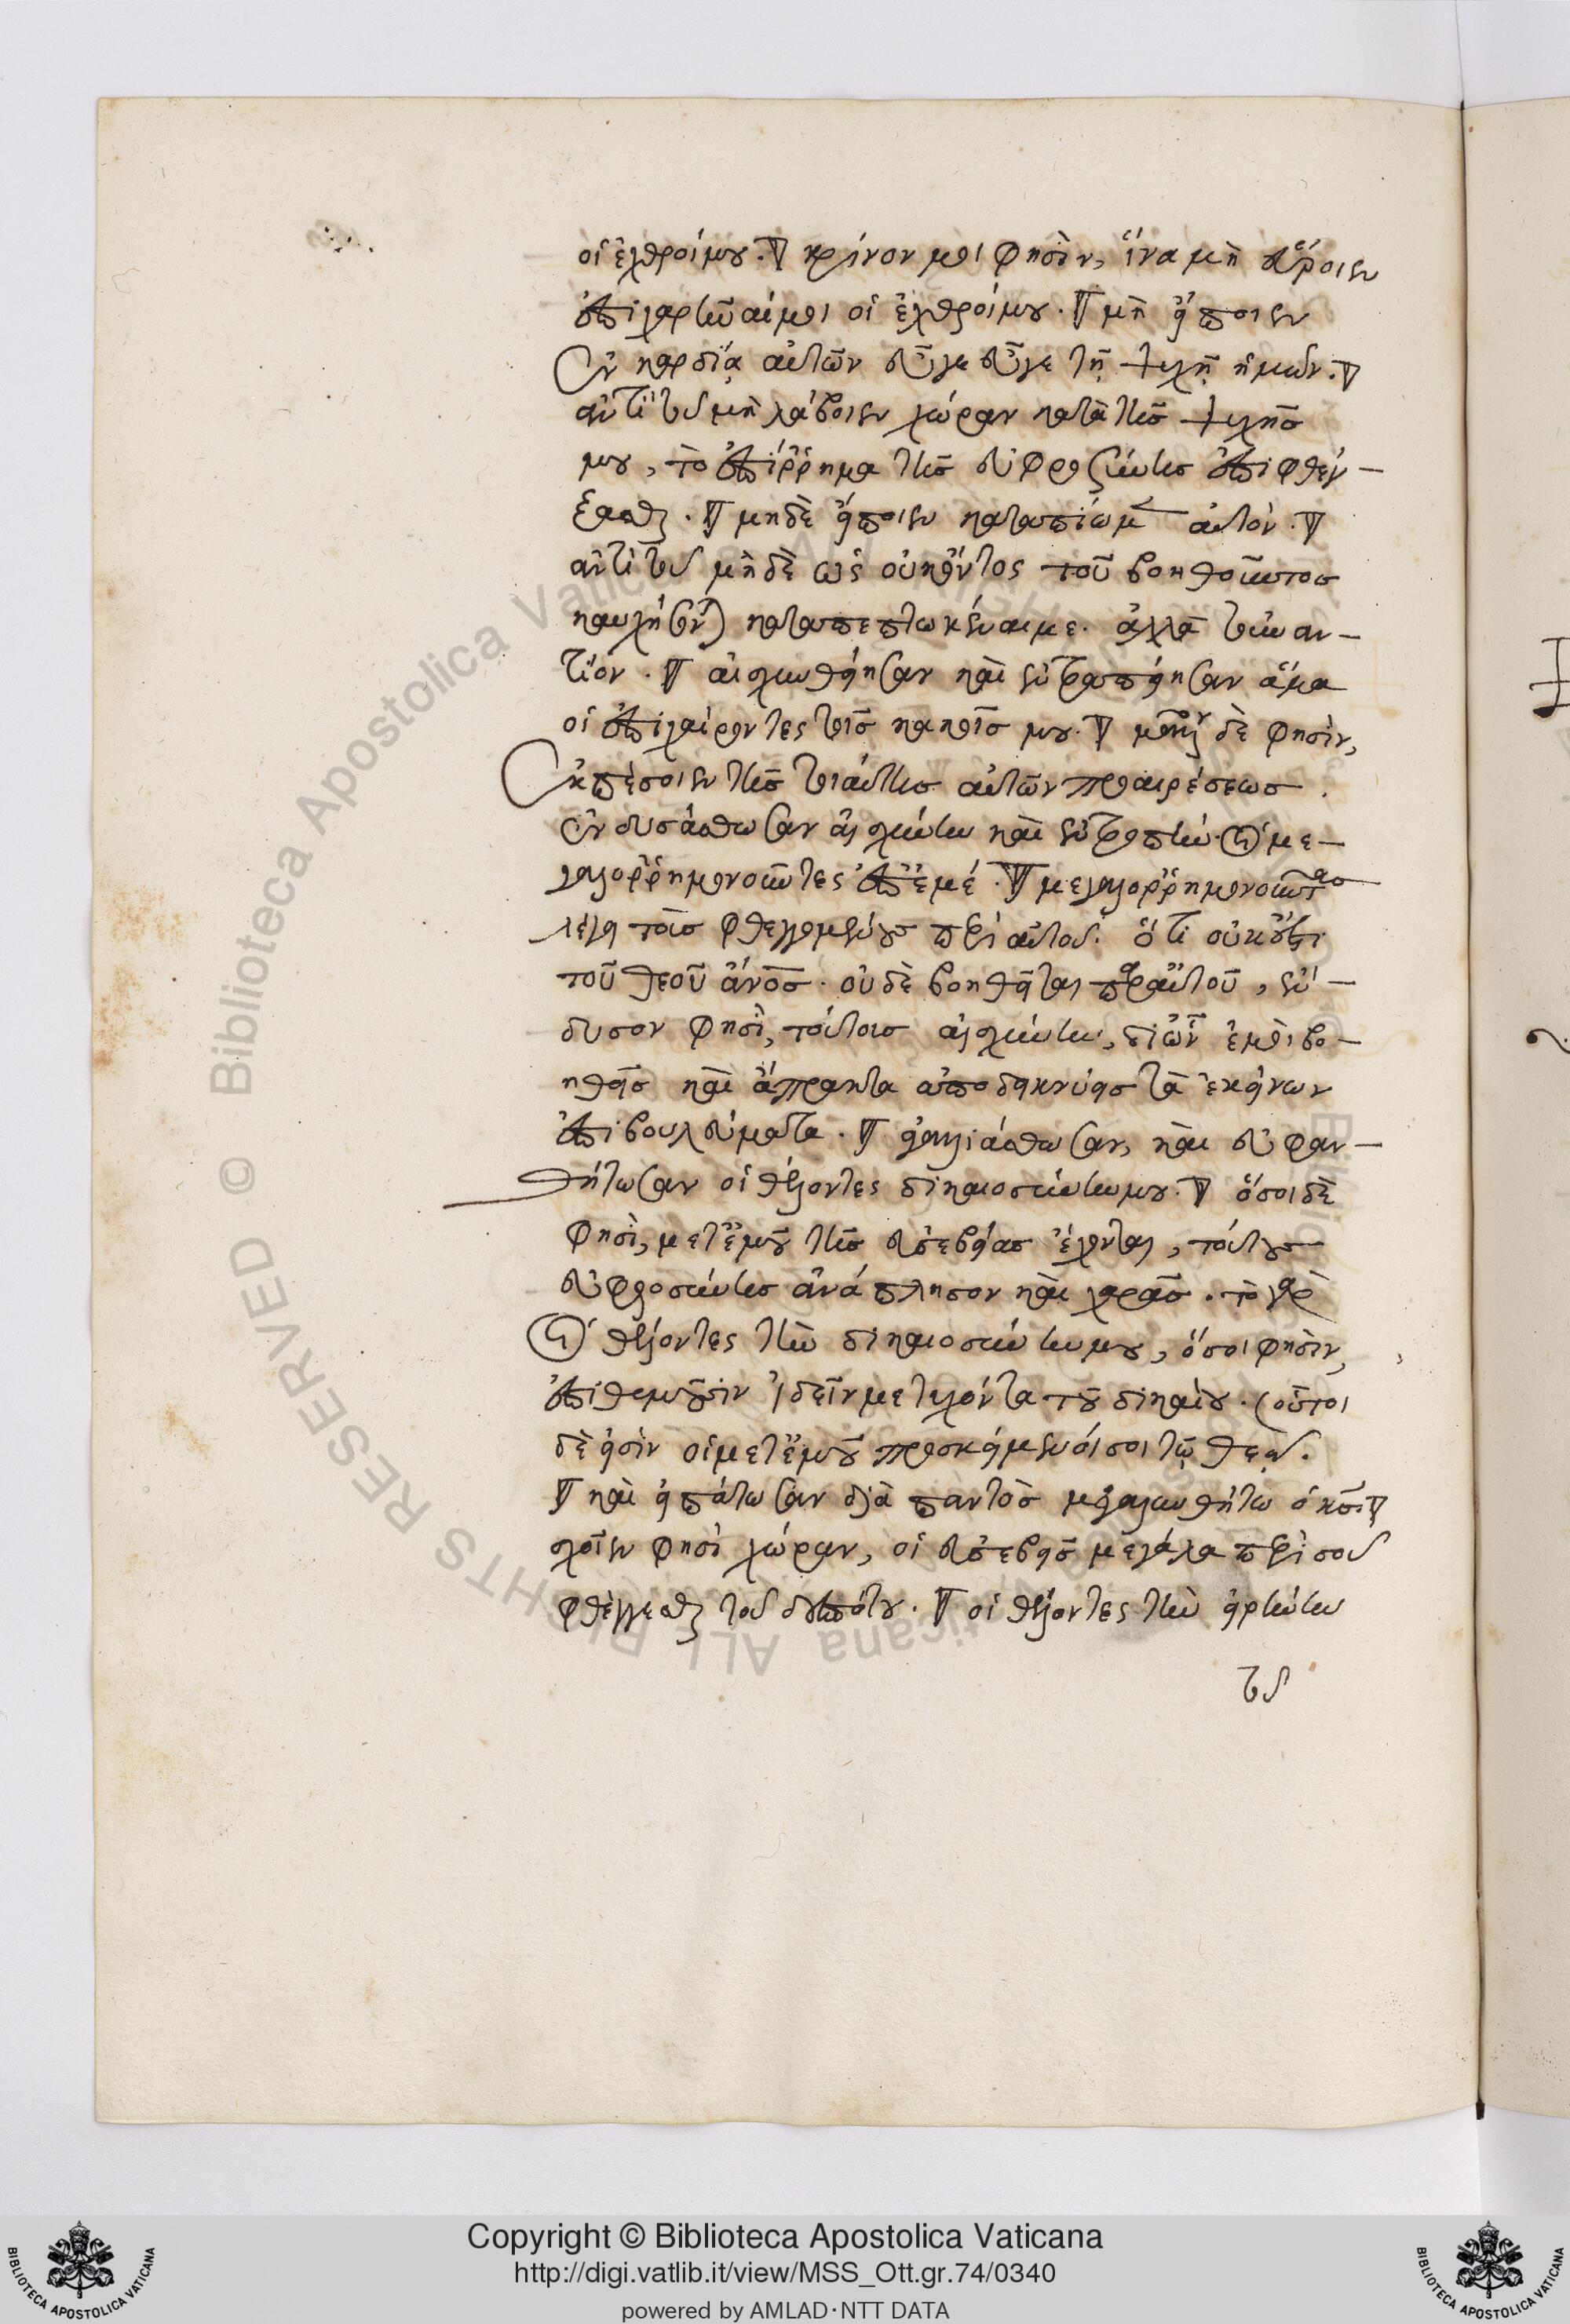 οἱ ἐχθροί μου. κρῖνον μοι φησὶν, ἵνα μὴ εὕροιεν
ἐπιχαρῆναί μοι οἱ ἐχθροί μου. μὴ εἴποιεν
ἐν καρδίᾳ αὐτῶν εὖγε εὖγε τῇ ψυχῇ ἡμῶν.
ἀντὶ τοῦ μὴ λάβοιεν χώραν κατὰ τῆς ψυχῆς
μου, τὸ ἐπίρρημα τῆς εὐφροσύνης ἐπιφθέγ-
ξασθαι. μηδὲ εἴποιεν κατεπίωμεν αὐτόν.
ἀντὶ τοῦ μηδὲ ὡς οὐκ ὄντος τοῦ βοηθοῦντος
καταπεπτωκέναι με. ἀλλὰ τοὐναν-
τίον. αἰσχυνθείησαν καὶ ἐντραπείησαν ἅμα
οἱ ἐπιχαίροντες τοῖς κακοῖς μου. δὲ φησὶν,
ἐκπέσοιεν τῆς τοιαύτης αὐτῶν προαιρέσεως.
ἐνδυσάσθωσαν αἰσχύνην καὶ ἐντροπὴν οἱ με-
γαλορρημονοῦντες ἐπ' ἐμέ. μεγαλορρημονοῦντας
λέγει τοὺς φθεγγομένους περὶ αὐτοῦ. ὅτι οὐκ ἔστι
τοῦ θεοῦ ἄνος. οὐδὲ βοηθεῖται παρ' αὐτοῦ, ἔν-
δυσον φησὶ, τούτοις αἰσχύνην, δι' ὧν ἐμοὶ βο-
ηθεῖς καὶ ἄπρακτα ἀποδεικνύεις τὰ ἐκείνων
ἐπιβουλεύματα. ἀγαλλιάσθωσαν, καὶ εὐφραν-
θήτωσαν οἱ θέλοντες δικαιοσύνην μου. ὅσοι δὲ
φησὶ, μετ' ἐμοῦ τῆς εὐσεβείας ἔχονται, τούτους
εὐφροσύνης ἀνάπλησον καὶ χαρᾶς. τὸ γὰρ
οἱ θέλοντες τὴν δικαιοσύνην μου, ὅσοι φησὶν,
ἐπιθυμοῦσιν ἰδεῖν με τυχόντα τοῦ δικαίου. οὗτοι
δὲ εἰσὶν οἱ μετ' ἐμοῦ προσκείμενοί σοι τῷ θεῷ.
καὶ εἰπάτωσαν διὰ παντὸς μεγαλυνθήτω ὁ κς
σχοῖεν φησὶ χώραν, οἱ εὐσεβεῖς μεγάλα περὶ σοῦ
φθέγγεσθαι τοῦ δεσπότου. οἱ θέλοντες τὴν εἰρήνην
τοῦ